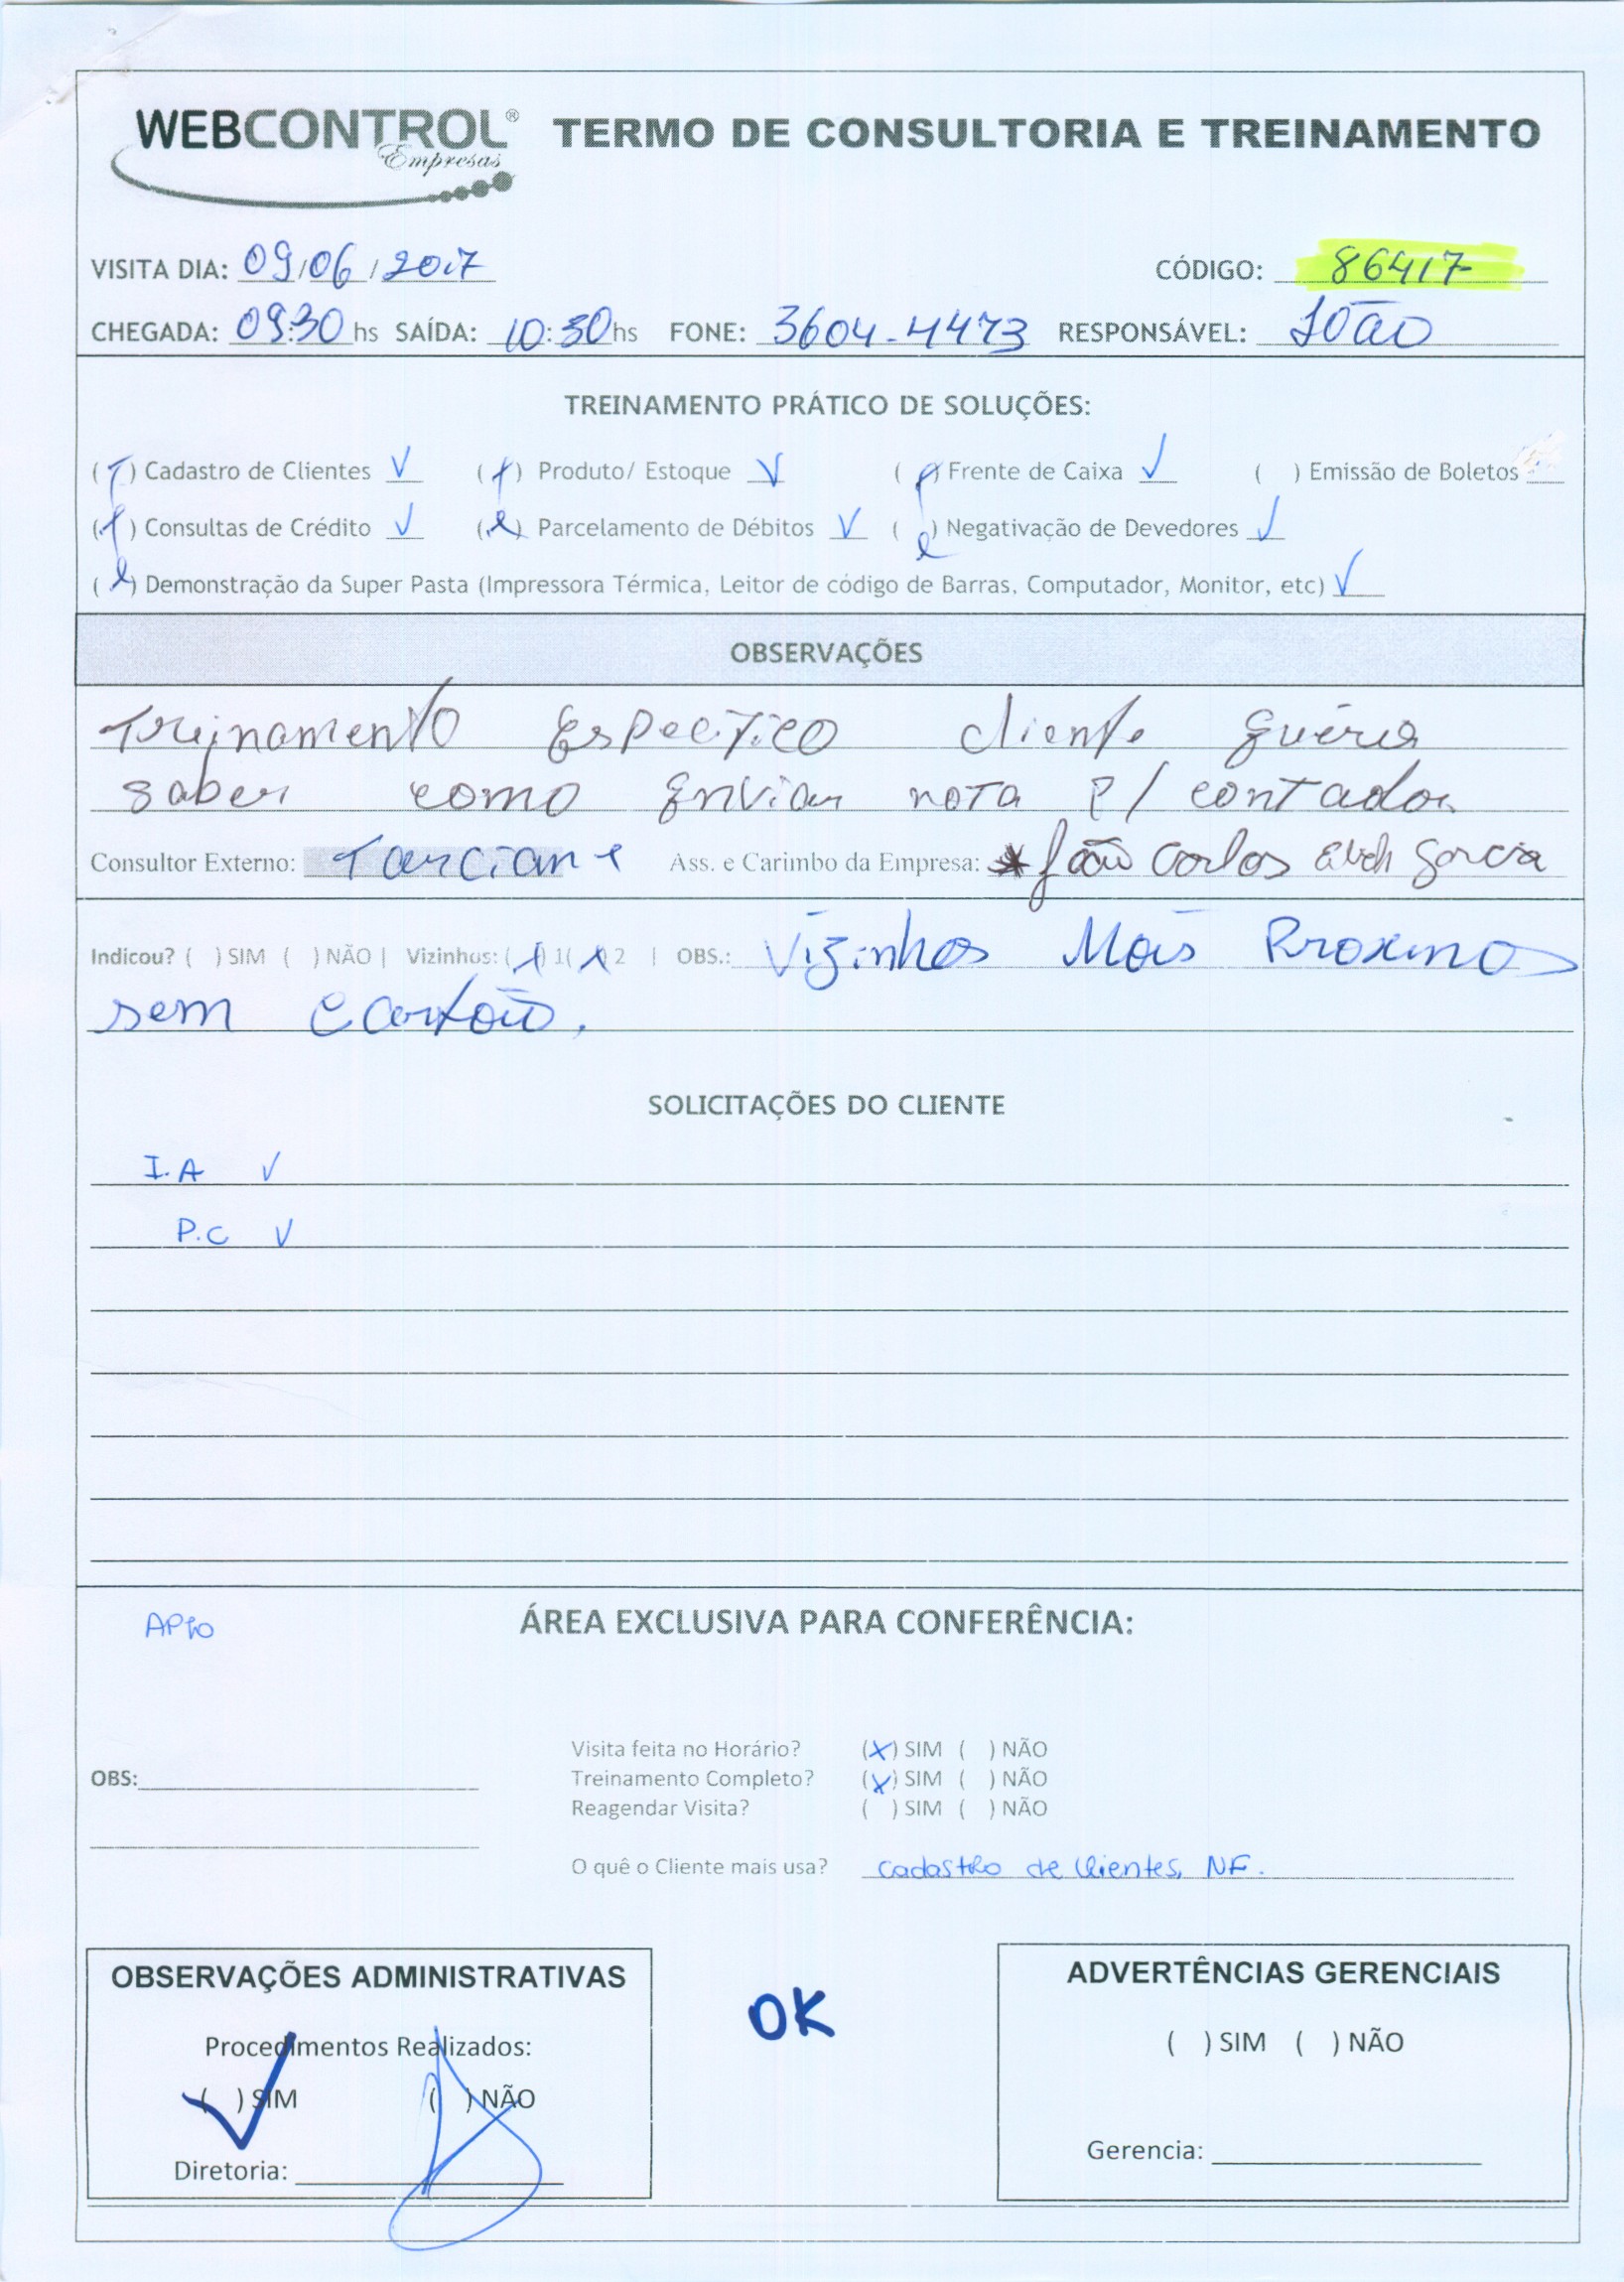 WEBCONTROL® Empresas TERMO DE CONSULTORIA E TREINAMENTO
VISITA DIA: 09/06/2017 CÓDIGO: 86417
CHEGADA: 09:30 hs SAÍDA: 10:30 hs FONE: 3604-4473 RESPONSÁVEL: João
TREINAMENTO PRÁTICO DE SOLUÇÕES:
( ) Cadastro de Clientes √ ( ) Produto/ Estoque √ ( ) Frente de Caixa √ ( ) Emissão de Boletos
( ) Consultas de Crédito √ ( ) Parcelamento de Débitos √ ( ) Negativação de Devedores √
( ) Demonstração da Super Pasta (Impressora Térmica, Leitor de código de Barras, Computador, Monitor, etc) √
OBSERVAÇÕES
Treinamento Específico cliente queria
saber como enviar nota P/ contador
Consultor Externo: Tarciane Ass. e Carimbo da Empresa: * João Carlos Garcia
Indicou? ( ) SIM ( ) NÃO | Vizinhos: (X) 1 (X) 2 | OBS.: Vizinhos Mais Proximos
sem cartão.
SOLICITAÇÕES DO CLIENTE
I.A √
P.C √
APto ÁREA EXCLUSIVA PARA CONFERÊNCIA:
Visita feita no Horário? (X) SIM ( ) NÃO
OBS: Treinamento Completo? (X) SIM ( ) NÃO
Reagendar Visita? ( ) SIM ( ) NÃO
O quê o Cliente mais usa? Cadastro de Clientes, NF.
OBSERVAÇÕES ADMINISTRATIVAS OK ADVERTÊNCIAS GERENCIAIS
Procedimentos Realizados: ( ) SIM ( ) NÃO
(√) SIM ( ) NÃO
Diretoria: Gerencia: